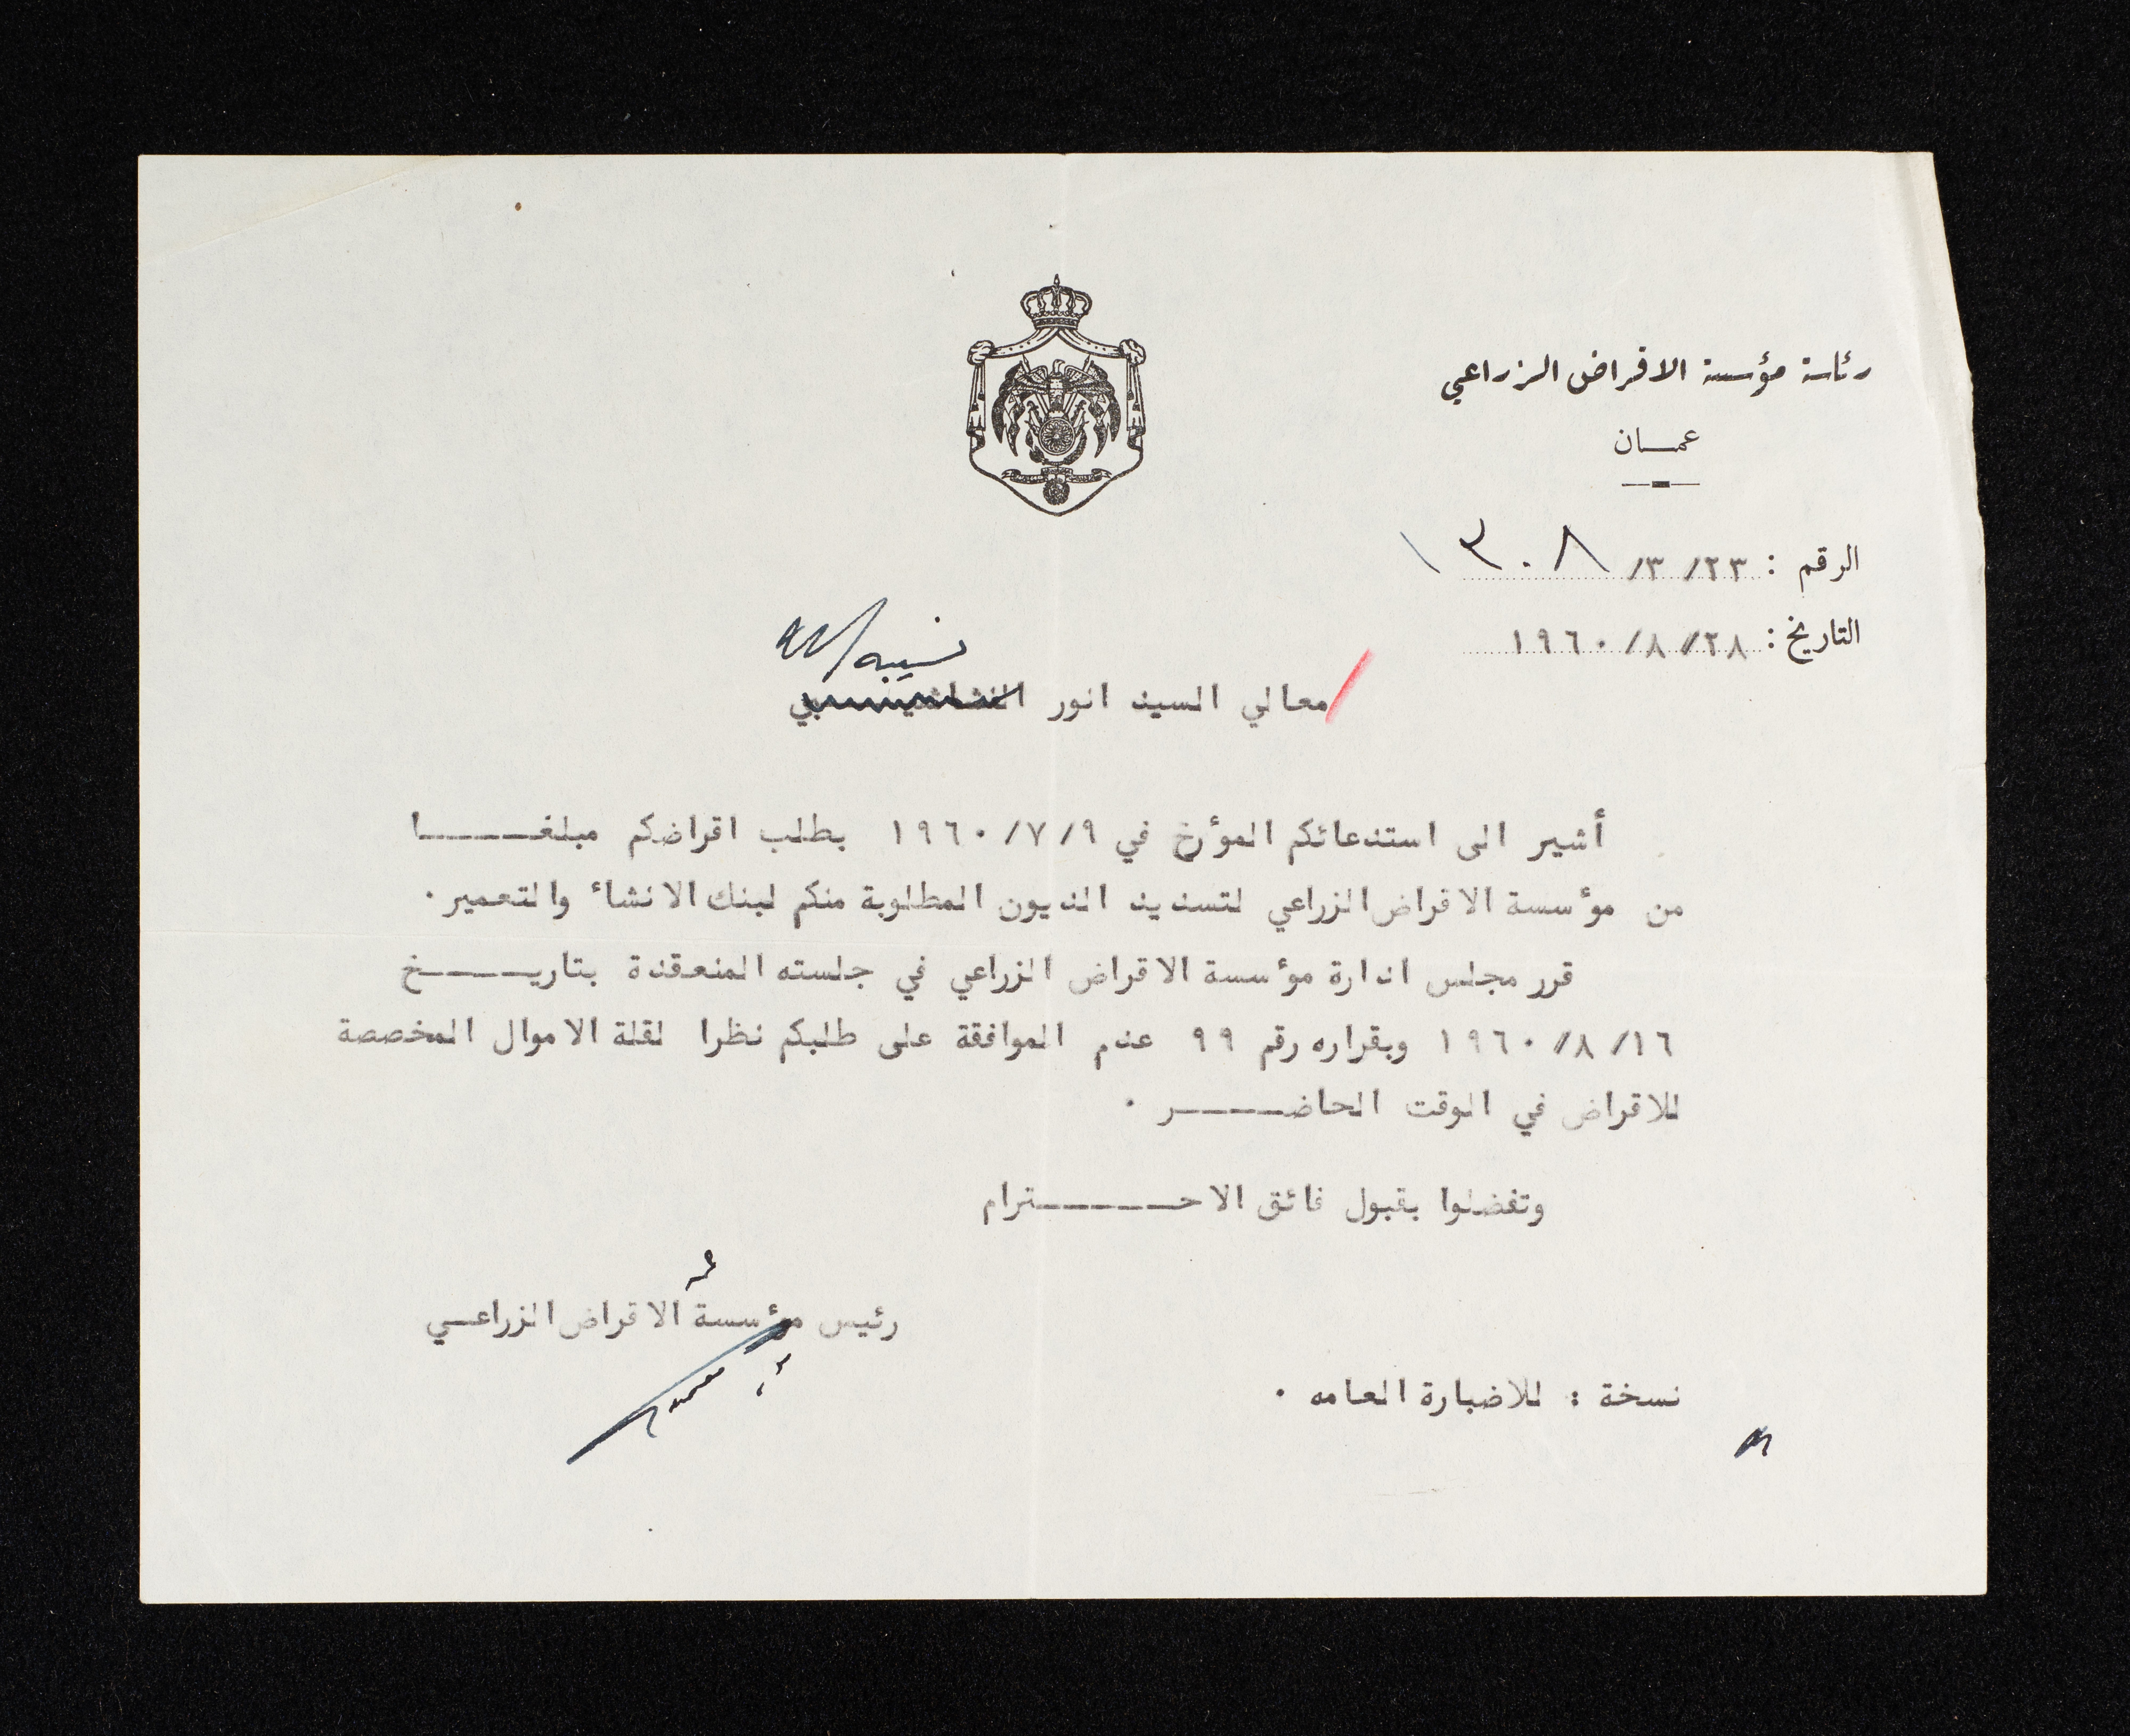 رئاسة مؤسسة الاقراض الزراعي
عمـــان
الرقم : ٢٣/ ٣/ ١٣٠٨
التاريخ : ٢٨/ ٨/ ١٩٦٠
نسيبه
معالي السيد انور النشاشيبي
أشير الى استدعائكم المؤرخ في ٩/ ٧/ ١٩٦٠ بطلب اقراضكم مبلغـــــا
من مؤسسة الاقراض الزراعي لتسديد الديون المطلوبة منكم لبنك الانشاء والتعمير.
قرر مجلس ادارة مؤسسة الاقراض الزراعي في جلسته المنعقدة بتاريـــــخ
١٦/ ٨/ ١٩٦٠ وبقراره رقم ٩٩ عدم الموافقة على طلبكم نظرا لقلة الاموال المخصصة
للاقراض في الوقت الحاضـــــر .
وتفضلوا بقبول فائق الاحـــــترام
رئيس مؤسسة الاقراض الزراعــي
نسخة : للاضبارة العامه .